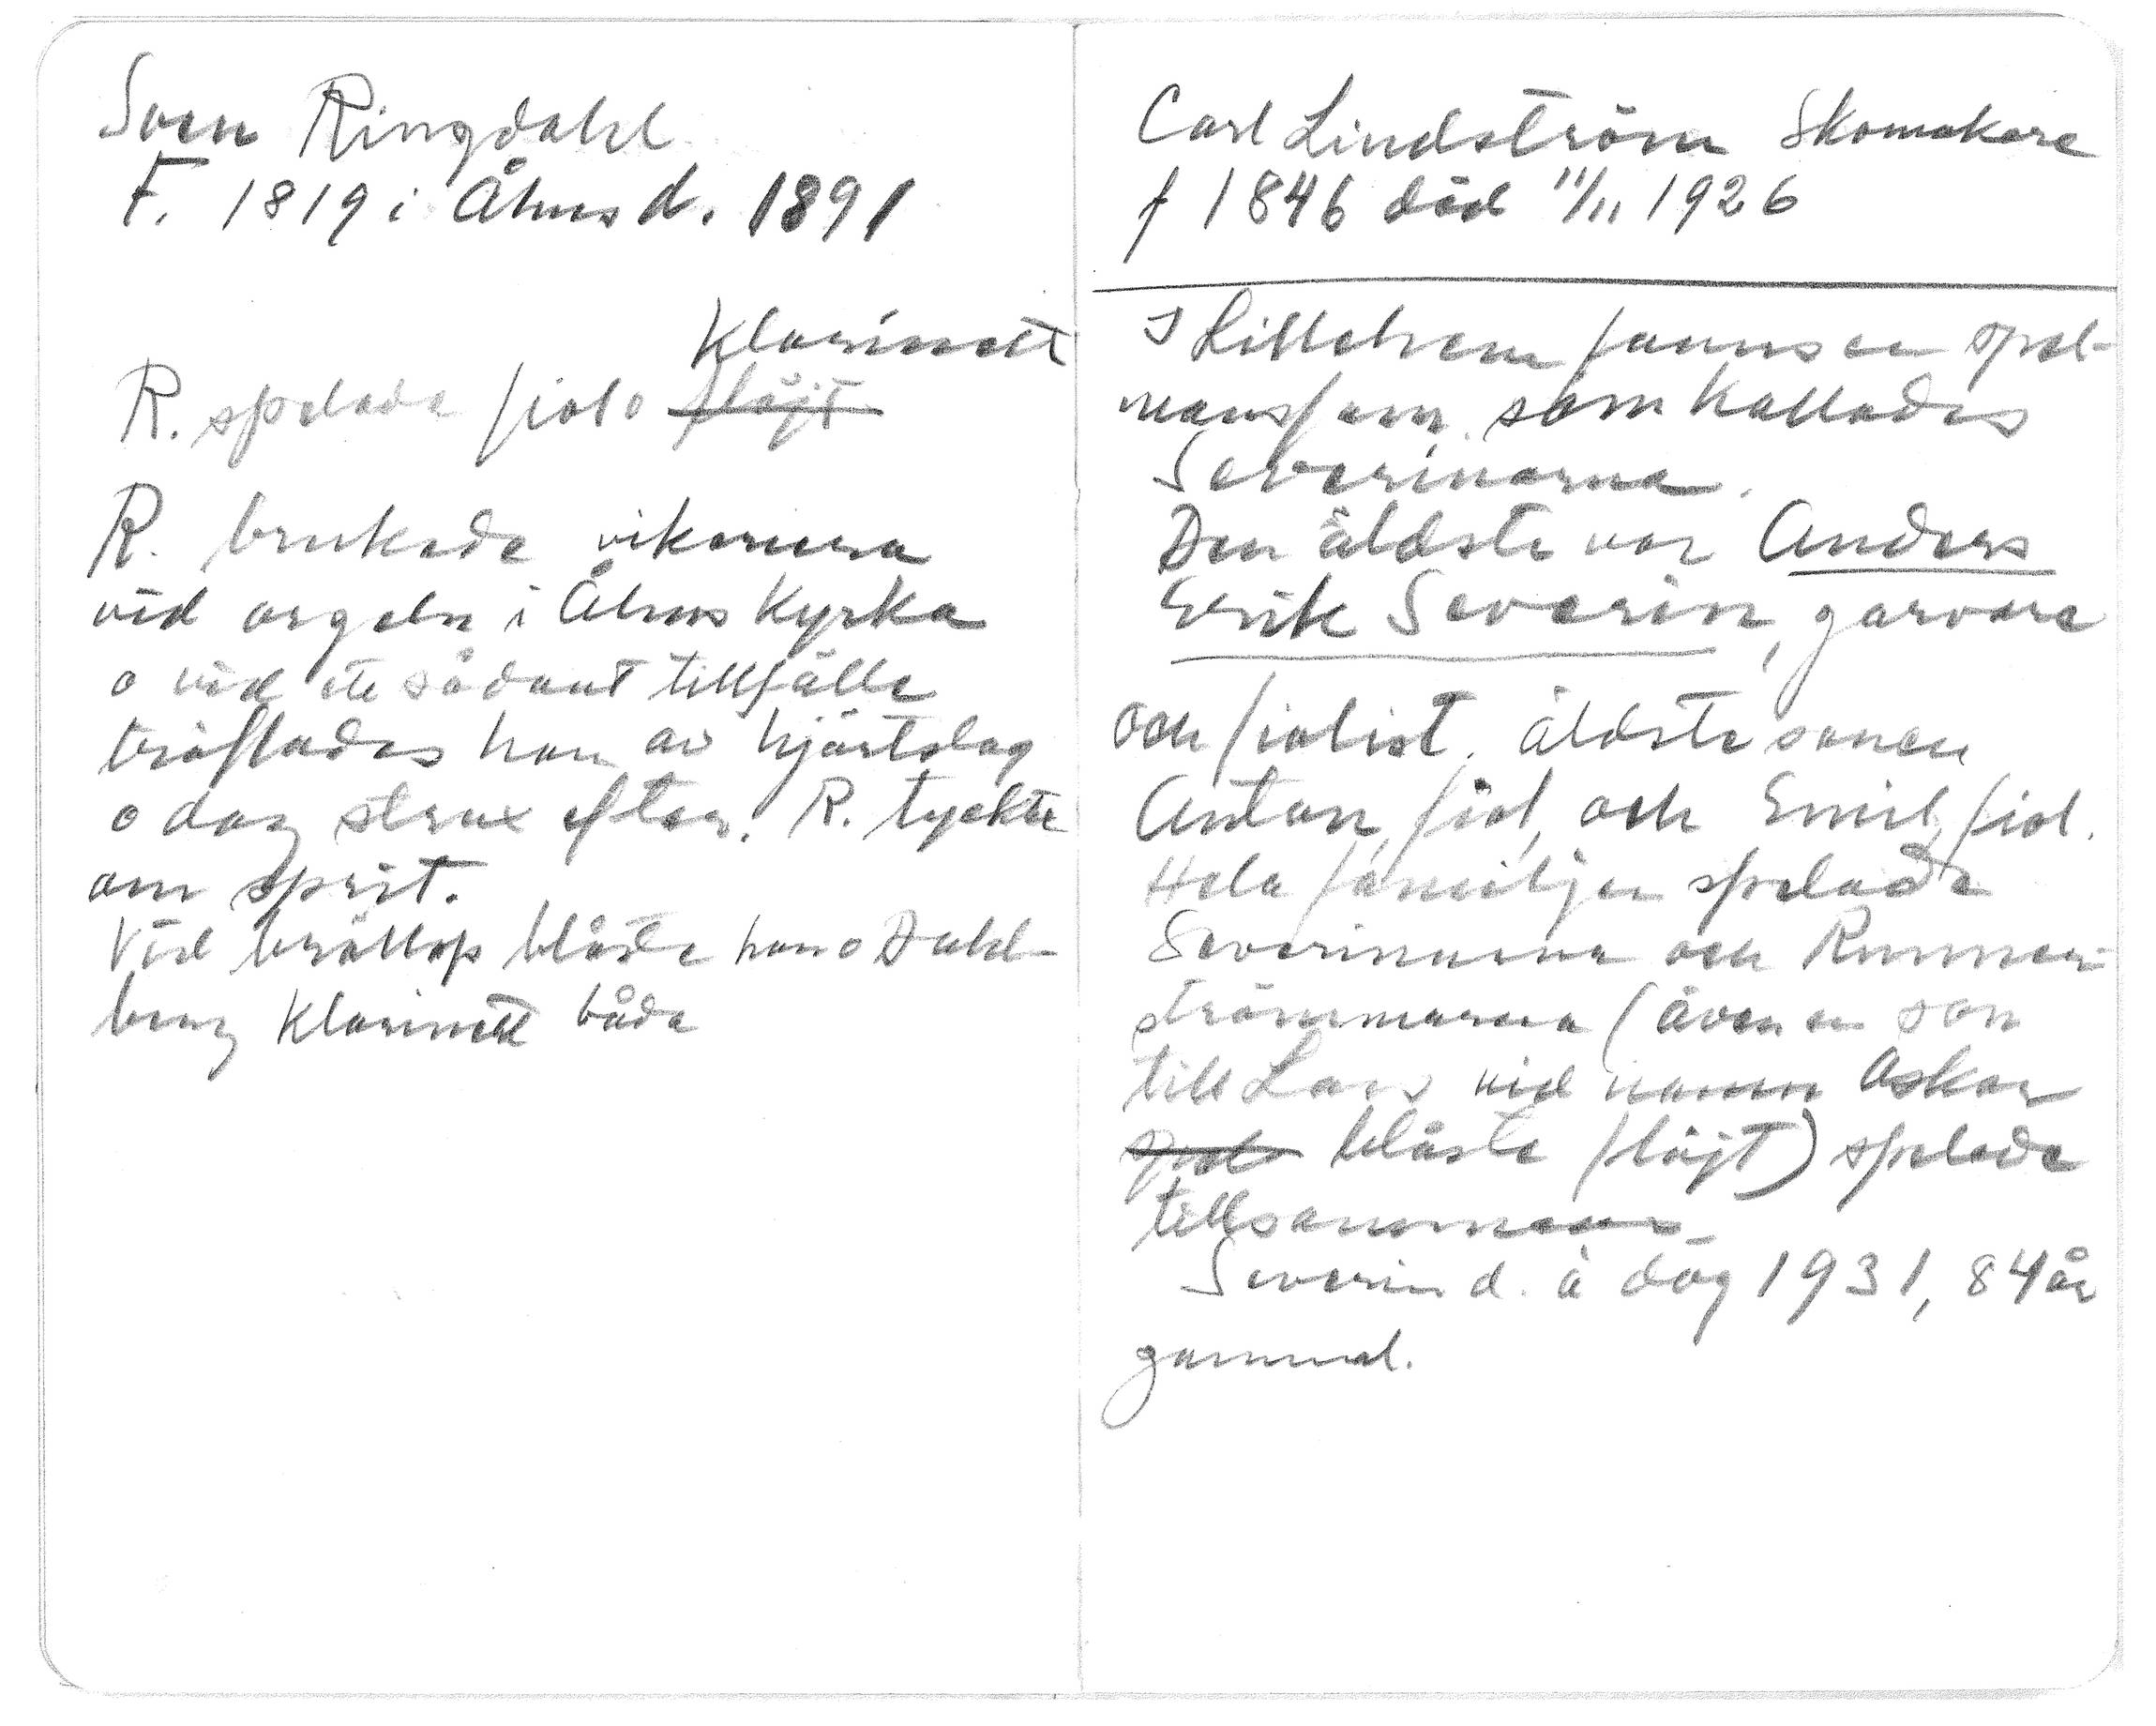 Sven Ringdahl
F. 1819 i Åhus d. 1891
Klarinett
R. spelade fiol o flöjt
R. brukade vikariera
vid orgeln i Åhus Kyrka
o vid ett sådant tillfälle
träffades han av hjärtslag
o dog strax efter. R. tyckte
om sprit.
Vid bröllop blåste han o Dahl-
berg Klarinett båda
Carl Lindström Skomakare
f 1846 död 11/11 1926
I Lillehem fanns en spel-
mansfam. som kallades
Severinarna.
Den äldste var Anders
Erik Severin, garvare
och fiolist. äldste sonen
Anton, fiol, och Emil, fiol.
Hela familjen spelade
Severinarna och Runner-
strömmarna (även en son
till Lars vid namn Oskar
blåste flöjt) spelade
tillsammans
Severin d. ä dog 1931, 84 år
gammal.